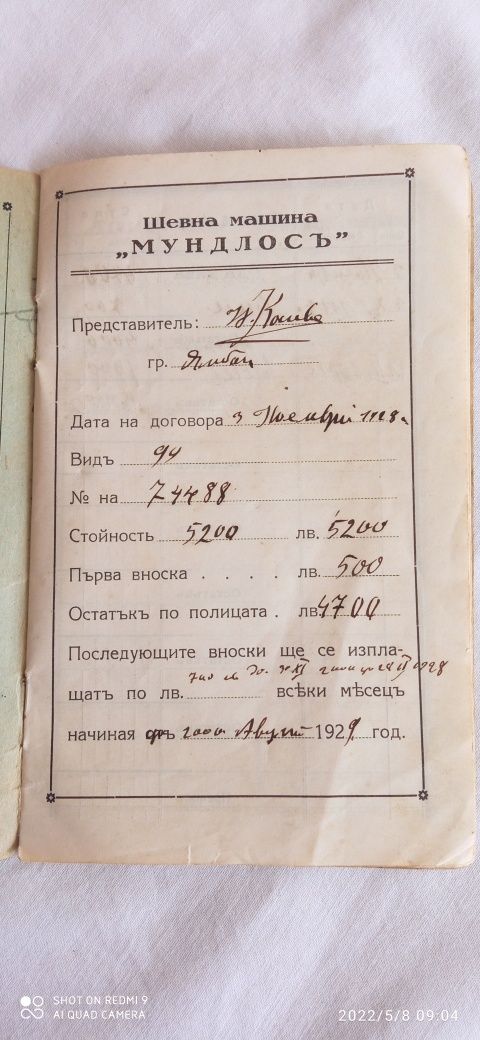 Шевна машина
„МУНДЛОСЪ"
Представитель:
гр. Ямбол
Дата на договора 3 Ноемврий 1928
Видъ 94
№ на 74488
Стойность 5200 лв. 5200
Първа вноска . . . . лв. 500
Остатъкъ по полицата . лв. 4700
Последующите вноски ще се изпла-
щатъ по лв. всѣки мѣсецъ
начиная отъ Август 1929 год.
SHOT ON REDMI 9
AI QUAD CAMERA
2022/5/8 09:04